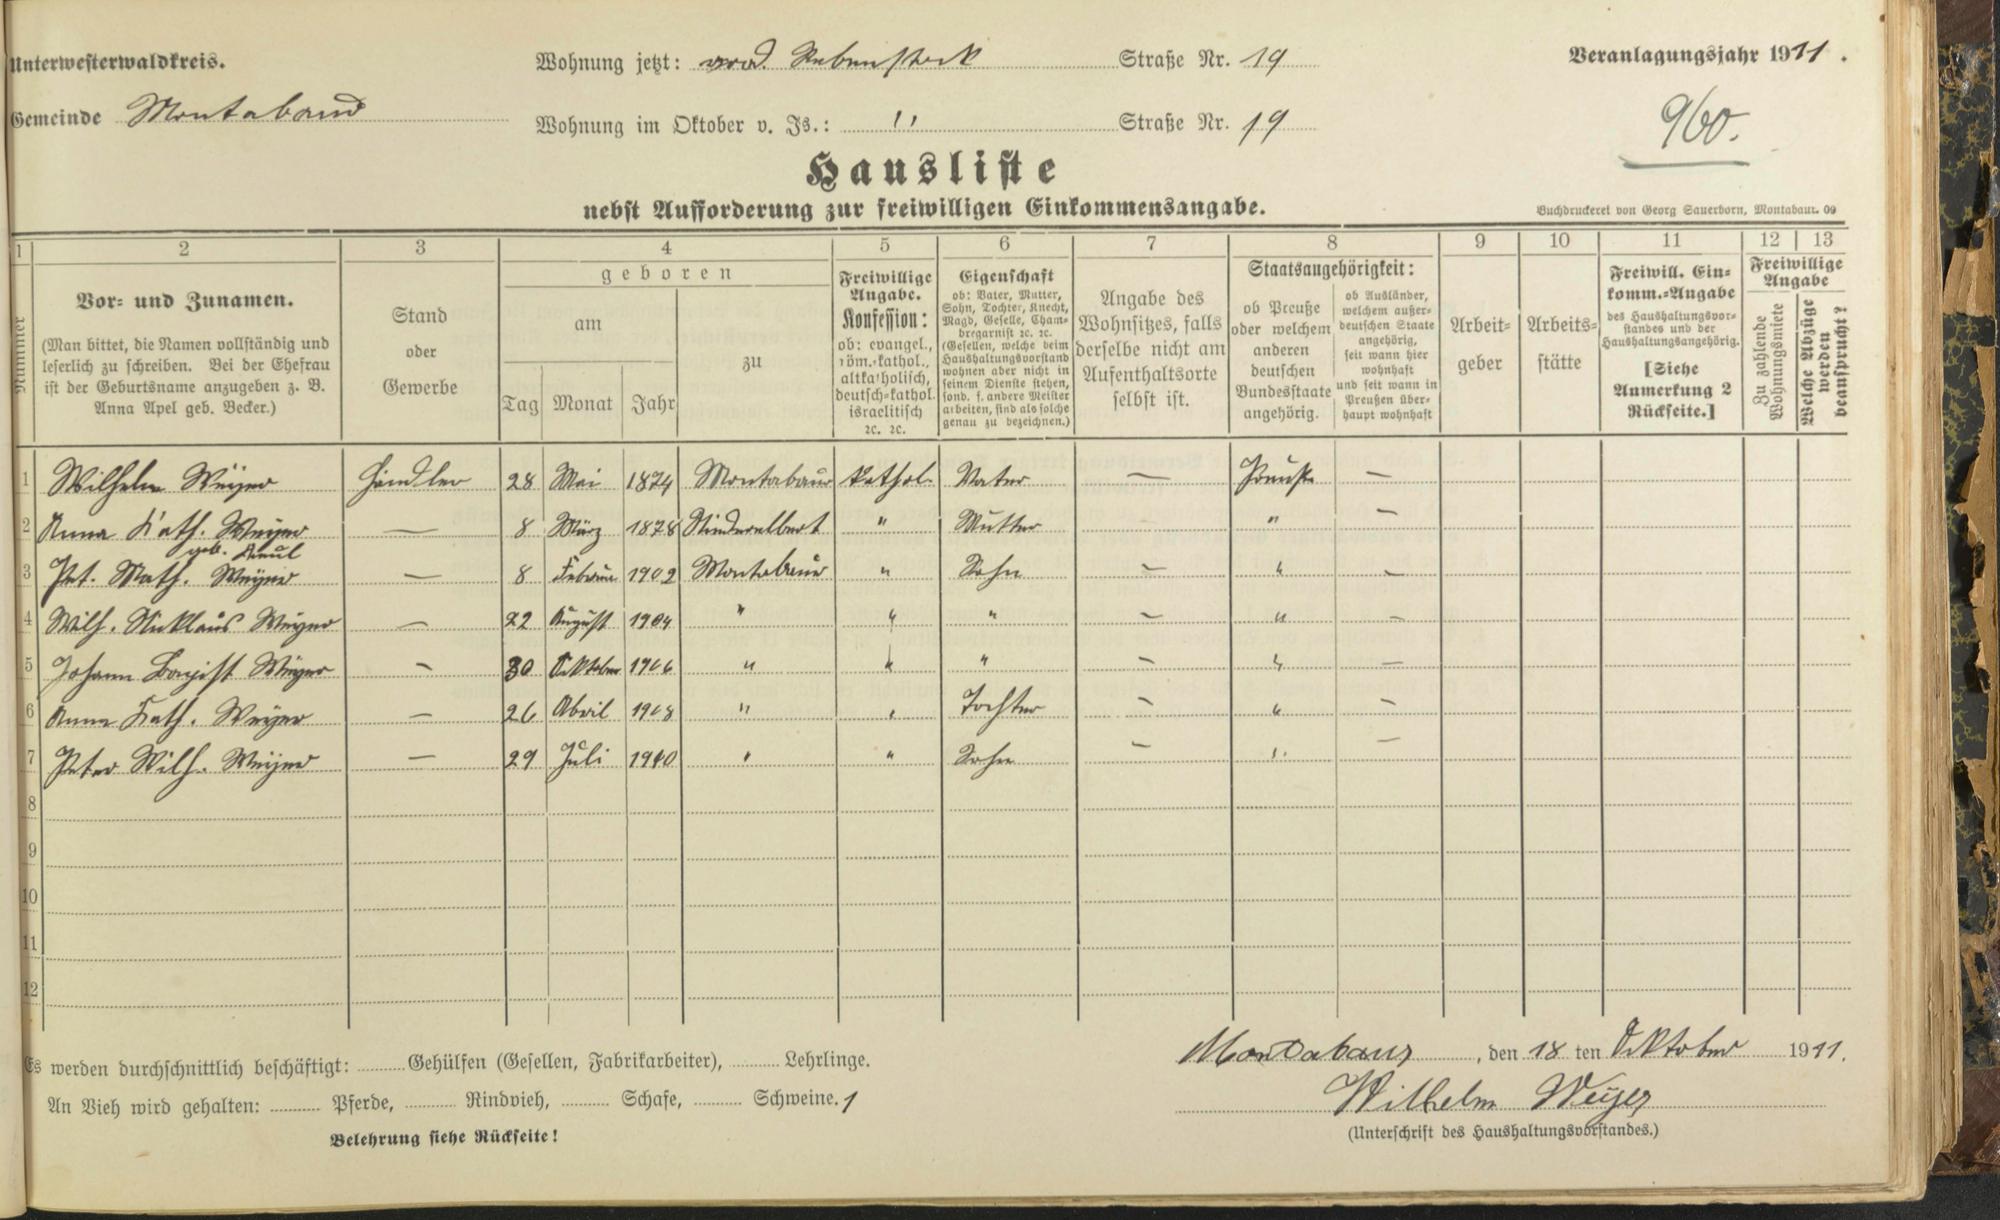 Unterwesterwaldkreis.
Wohnung jetzt: vord. Rebenstock Straße Nr. 19
Veranlagungsjahr 1911.
Gemeinde Montabaur
Wohnung im Oktober v. Js.: " Straße Nr. 19
960.
Hausliste
nebst Aufforderung zur freiwilligen Einkommensangabe.
Buchdruckerei von Georg Sauerborn, Montabaur. 09
1 2 3 4 5 6 7 8 9 10 11 12 13
Nummer
Vor- und Zunamen.
(Man bittet, die Namen vollständig und
leserlich zu schreiben. Bei der Ehefrau
ist der Geburtsname anzugeben z. B.
Anna Apel geb. Becker.)
Stand
oder
Gewerbe
geboren
am
Tag Monat Jahr
zu
Freiwillige
Angabe.
Konfession:
ob: evangel.,
röm.-kathol.,
altkatholisch,
deutsch-kathol.
israelitisch
ꝛc. ꝛc.
Eigenschaft
ob: Vater, Mutter,
Sohn, Tochter, Knecht,
Magd, Geselle, Cham-
dregarnist ꝛc. ꝛc.
(Gesellen, welche beim
Haushaltungsvorstand
wohnen aber nicht in
seinem Dienste stehen,
sond. f. andere Meister
arbeiten, sind als solche
genau zu bezeichnen.)
Angabe des
Wohnsitzes, falls
derselbe nicht am
Aufenthaltsorte
selbst ist.
Staatsangehörigkeit:
ob Preuße
oder welchem
anderen
deutschen
Bundesstaate
angehörig.
ob Ausländer,
welchem außer-
deutschen Staate
angehörig,
seit wann hier
wohnhaft
und seit wann in
Preußen über-
haupt wohnhaft
Arbeit-
geber
Arbeits-
stätte
Freiwill. Ein-
komm.-Angabe
des Haushaltungsvor-
standes und der
Haushaltungsangehörig.
[Siehe
Anmerkung 2
Rückseite.]
Freiwillige
Angabe
Zu zahlende
Wohnungsmiete
Welche Abzüge
werden
beansprucht?
1 Wilhelm Weyer Händler 28 Mai 1874 Montabaur kathol. Vater — Preuße —
2 Anna Kath. Weyer — 8 März 1878 Niederelbert " Mutter " —
geb. Keul
3 Pet. Math. Weyer — 8 Februar 1902 Montabaur " Sohn — " —
4 Wilh. Nicklaus Weyer — 22 August 1904 " " " — " —
5 Johann Baptist Weyer — 30 Oktober 1906 " " " — " —
6 Anna Kath. Weyer — 26 April 1908 " " Tochter — " —
7 Peter Wilh. Weyer — 29 Juli 1910 " " Sohn — " —
8
9
10
11
12
Es werden durchschnittlich beschäftigt: Gehülfen (Gesellen, Fabrikarbeiter), Lehrlinge.
An Vieh wird gehalten: Pferde, Rindvieh, Schafe, Schweine. 1
Belehrung siehe Rückseite!
Montabaur, den 18 ten Oktober 1911.
Wilhelm Weyer
(Unterschrift des Haushaltungsvorstandes.)